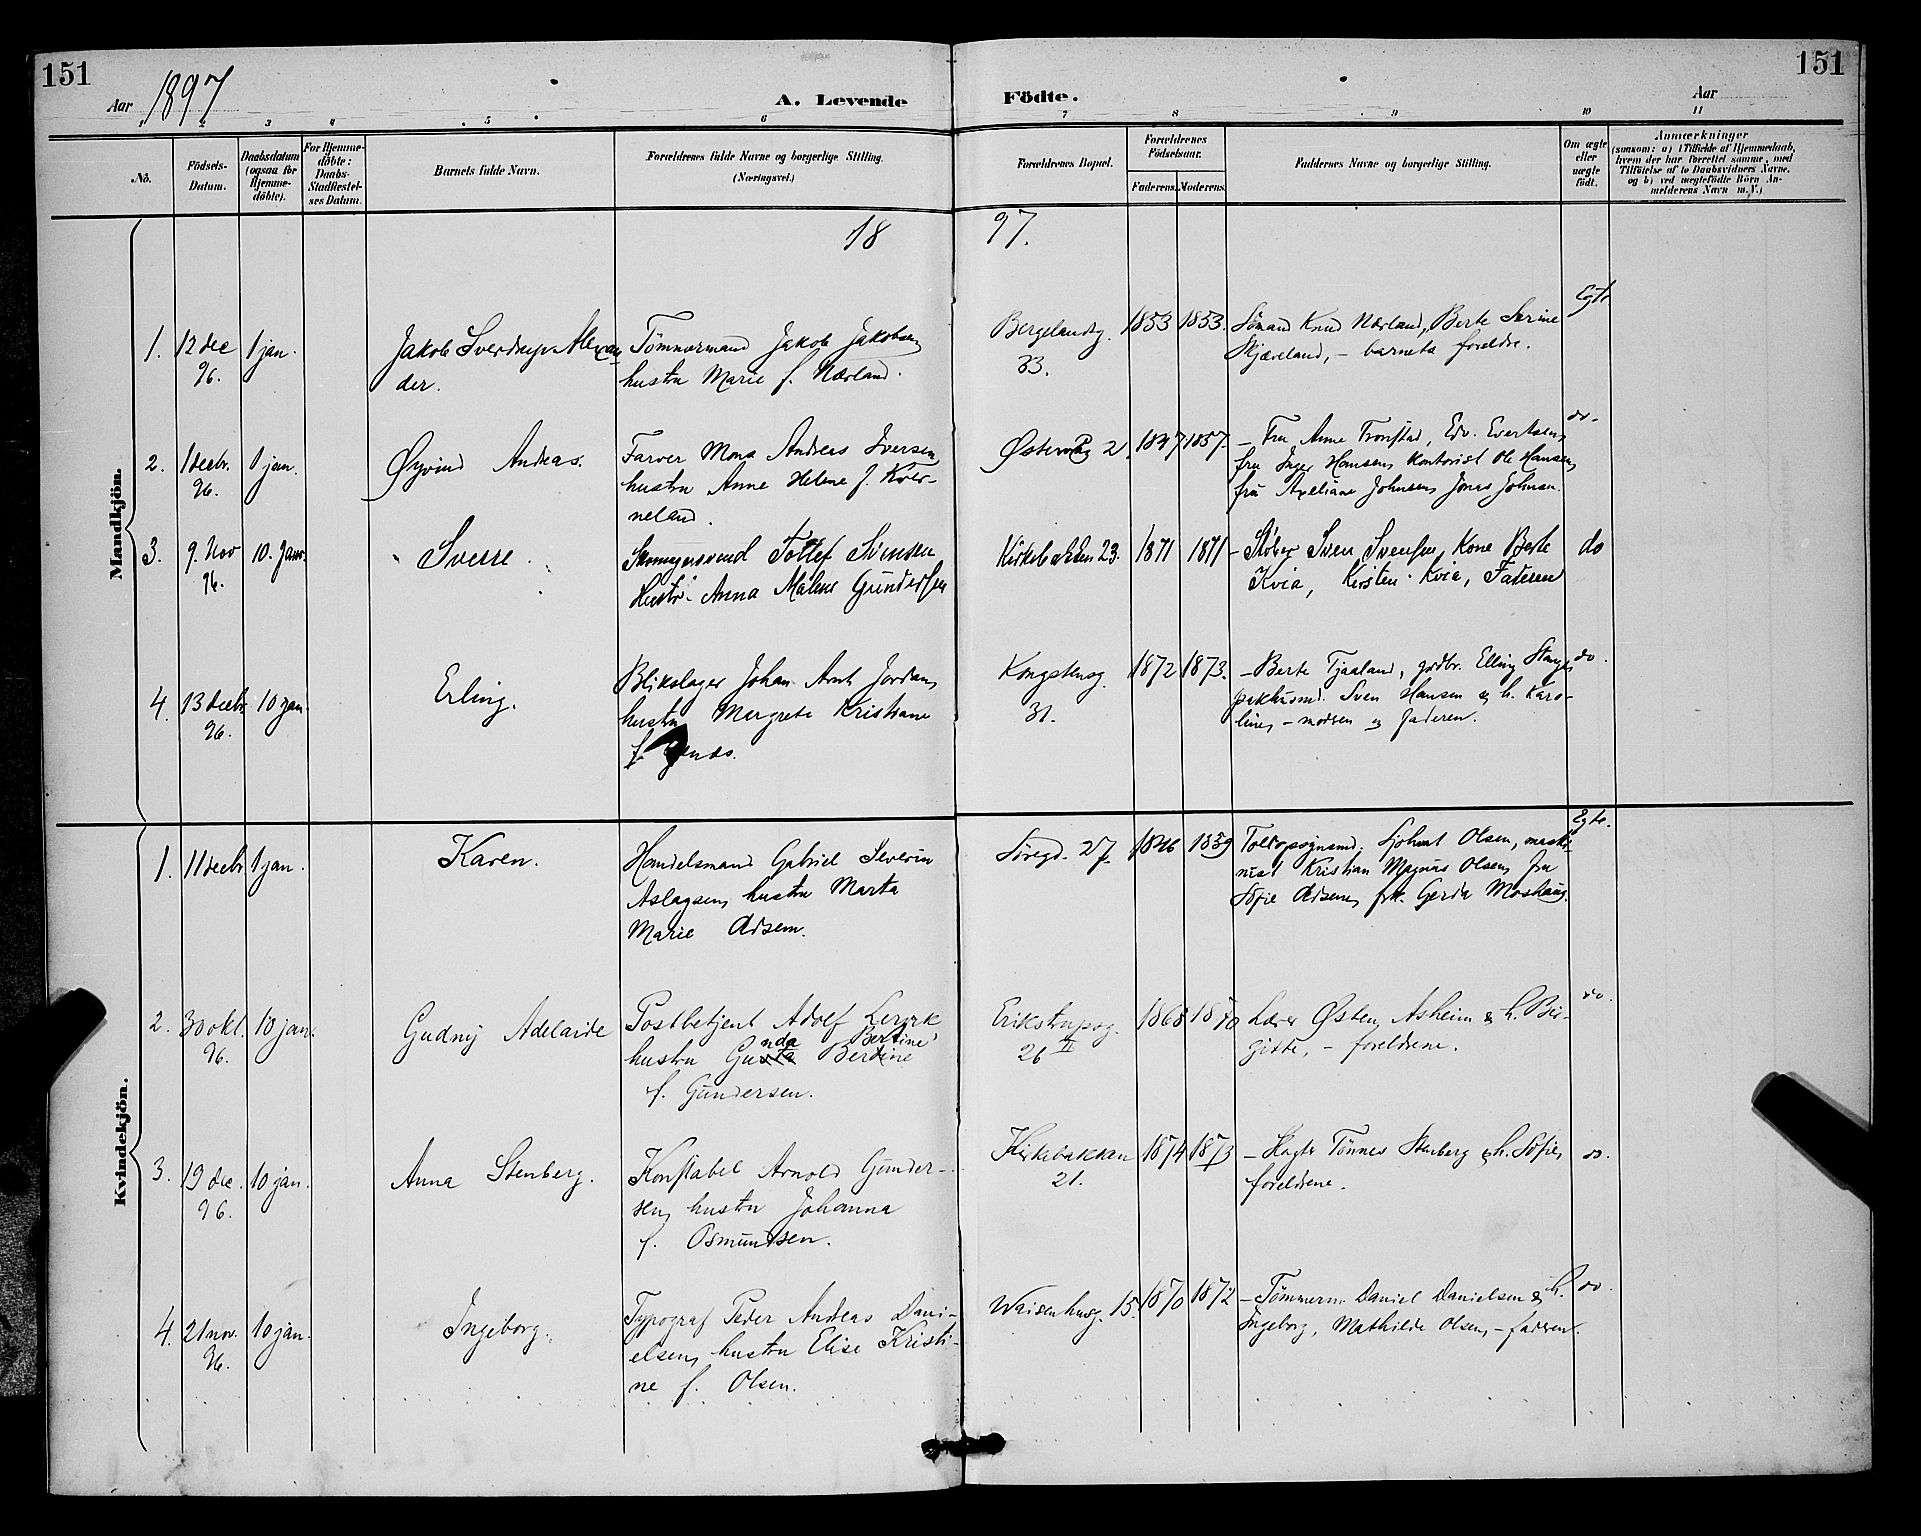 151
Aar 1897
A. Levende Födte.
Aar
151
1 2 3 4 5 6 7 8 9 10 11
No.
Födsels-
Datum.
Daabsdatum
(ogsaa for
Hjemme-
döbte).
For Hjemme-
döbte:
Daabs-
Stadfæstel-
ses Datum.
Barnets fulde Navn.
Forældrenes fulde Navne og borgerlige Stilling.
(Næringsvei.)
Forældrenes Bopæl.
Forældrenes
Födselsaar.
Faderens. Moderens.
Faddernes Navne og borgerlige Stilling.
Om ægte
eller
uægte
födt.
Anmærkninger
(saasom: a) i Tilfælde af Hjemmedaab,
hvem der har forrettet samme, med
Tilföielse af to Daabsvidners Navne.
og b) ved uægtefödte Börn An-
melderens Navn m. V.)
18 97.
Mandkjön.
1. 12 dec
96.
1 jan.
Jakob Sverdrup Alexan
der.
Tömmermand Jakob Jakobsen
hustru Marie f. Nærland.
Bergelandsg.
33.
1853 1853.
Sömand Knud Nærland, Berte Serine
Skjæveland, – barnets foreldre.
Egte
2. 1 decbr.
96.
1 jan.
Øyvind Andreas.
Farver Mons Andreas Iversen
hustru Anne Helene f. Kver-
neland.
Østervåg 2. 1847 1857.
– Fru Anne Tronstad, Edv. Evertsen,
fru Inger Hansen, kontorist Ole Hansen,
fru Axeliane Johnsen, Jonas Johnsen.
do.
3. 9. Nov
96.
10. Janr.
Sverre.
Svend Tollef Svensen
Hustr: Anna Malene Gundersen
Kirkebakken 23. 1871 1871
– Støber Sven Svensen, Kone Berte
Kvia, Kirsten Kvia, Faderen
do
4. 13 decbr
96.
10 jan
Erling.
Blikslager Johan Arnt Jordan,
hustru Margrete Kristiane
f.
Kongstensg.
31.
1872 1873.
– Berte Tjaaland, Elling
Sven Hansen og h. Karo-
line, – moren og faderen.
do.
Kvindekjön.
1. 11 decbr 1 jan.
Karen.
Handelsmand Gabriel Severin
Aslagsen, hustru Marta
Marie Adsem.
Söregd. 27. 1846 1859
Toldopsynsmd. Olsen, maski-
nist Kristian Magnus Olsen, fru
Sofie Adsem, frk. Gerda Moshaug.
Egte.
2. 30 okt.
96.
10 jan.
Gudny Adelaide
Postbetjent Adolf Lervik
nda Bertine
hustru Gusta Berdine
f. Gundersen.
Erikstrupsg.
26 II
1868 1870
Lærer Østen Asheim & h. Bir-
gitte, – foreldrene.
do.
3. 19 dec.
96.
10 jan.
Anna Stenberg.
Konstabel Arnold Gunder-
sen, hustru Johanna
f. Osmundsen.
Kirkebakken
21.
1874 1873
– Tönnes Stenberg & h. Sofie,
foreldrene.
do.
4. 21 nov.
96.
10 jan.
Ingeborg.
Typograf Peder Andreas Dani-
elsen, hustru Elise Kristi-
ne f. Olsen.
Waisenhusg. 15. 1870 1872
– Tömmerm. Daniel Danielsen & h.
Ingeborg, Mathilde Olsen, – faderen.
do.